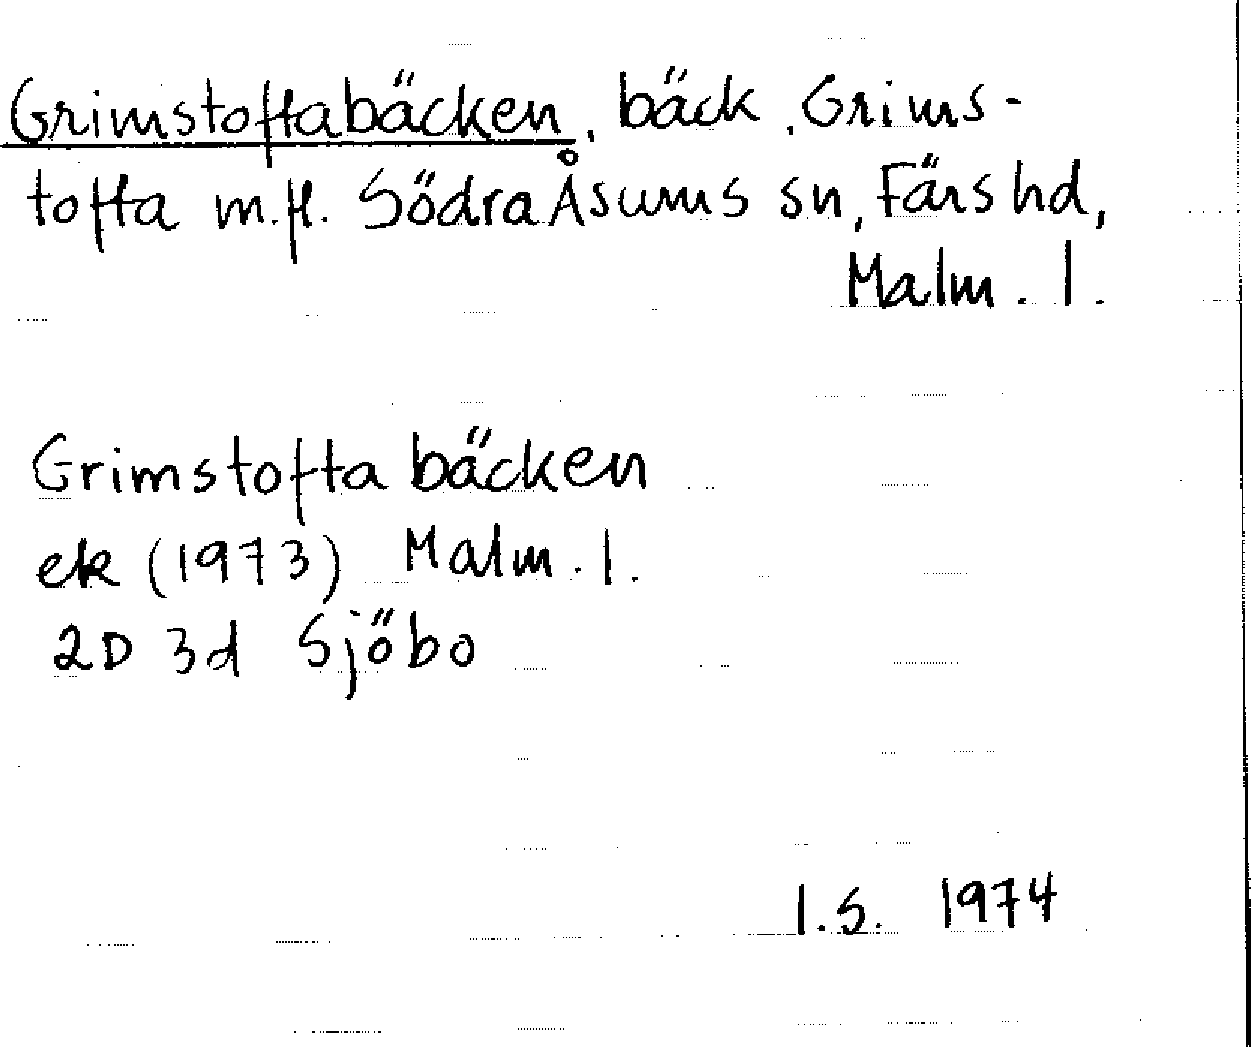 Grimstoftabäcken, bäck, Grims-
tofta m.fl. Södra Åsums sn, Färs hd,
Malm. l.
Grimstofta bäcken
ek (1973) Malm. l.
2D 3d Sjöbo
I.S. 1974